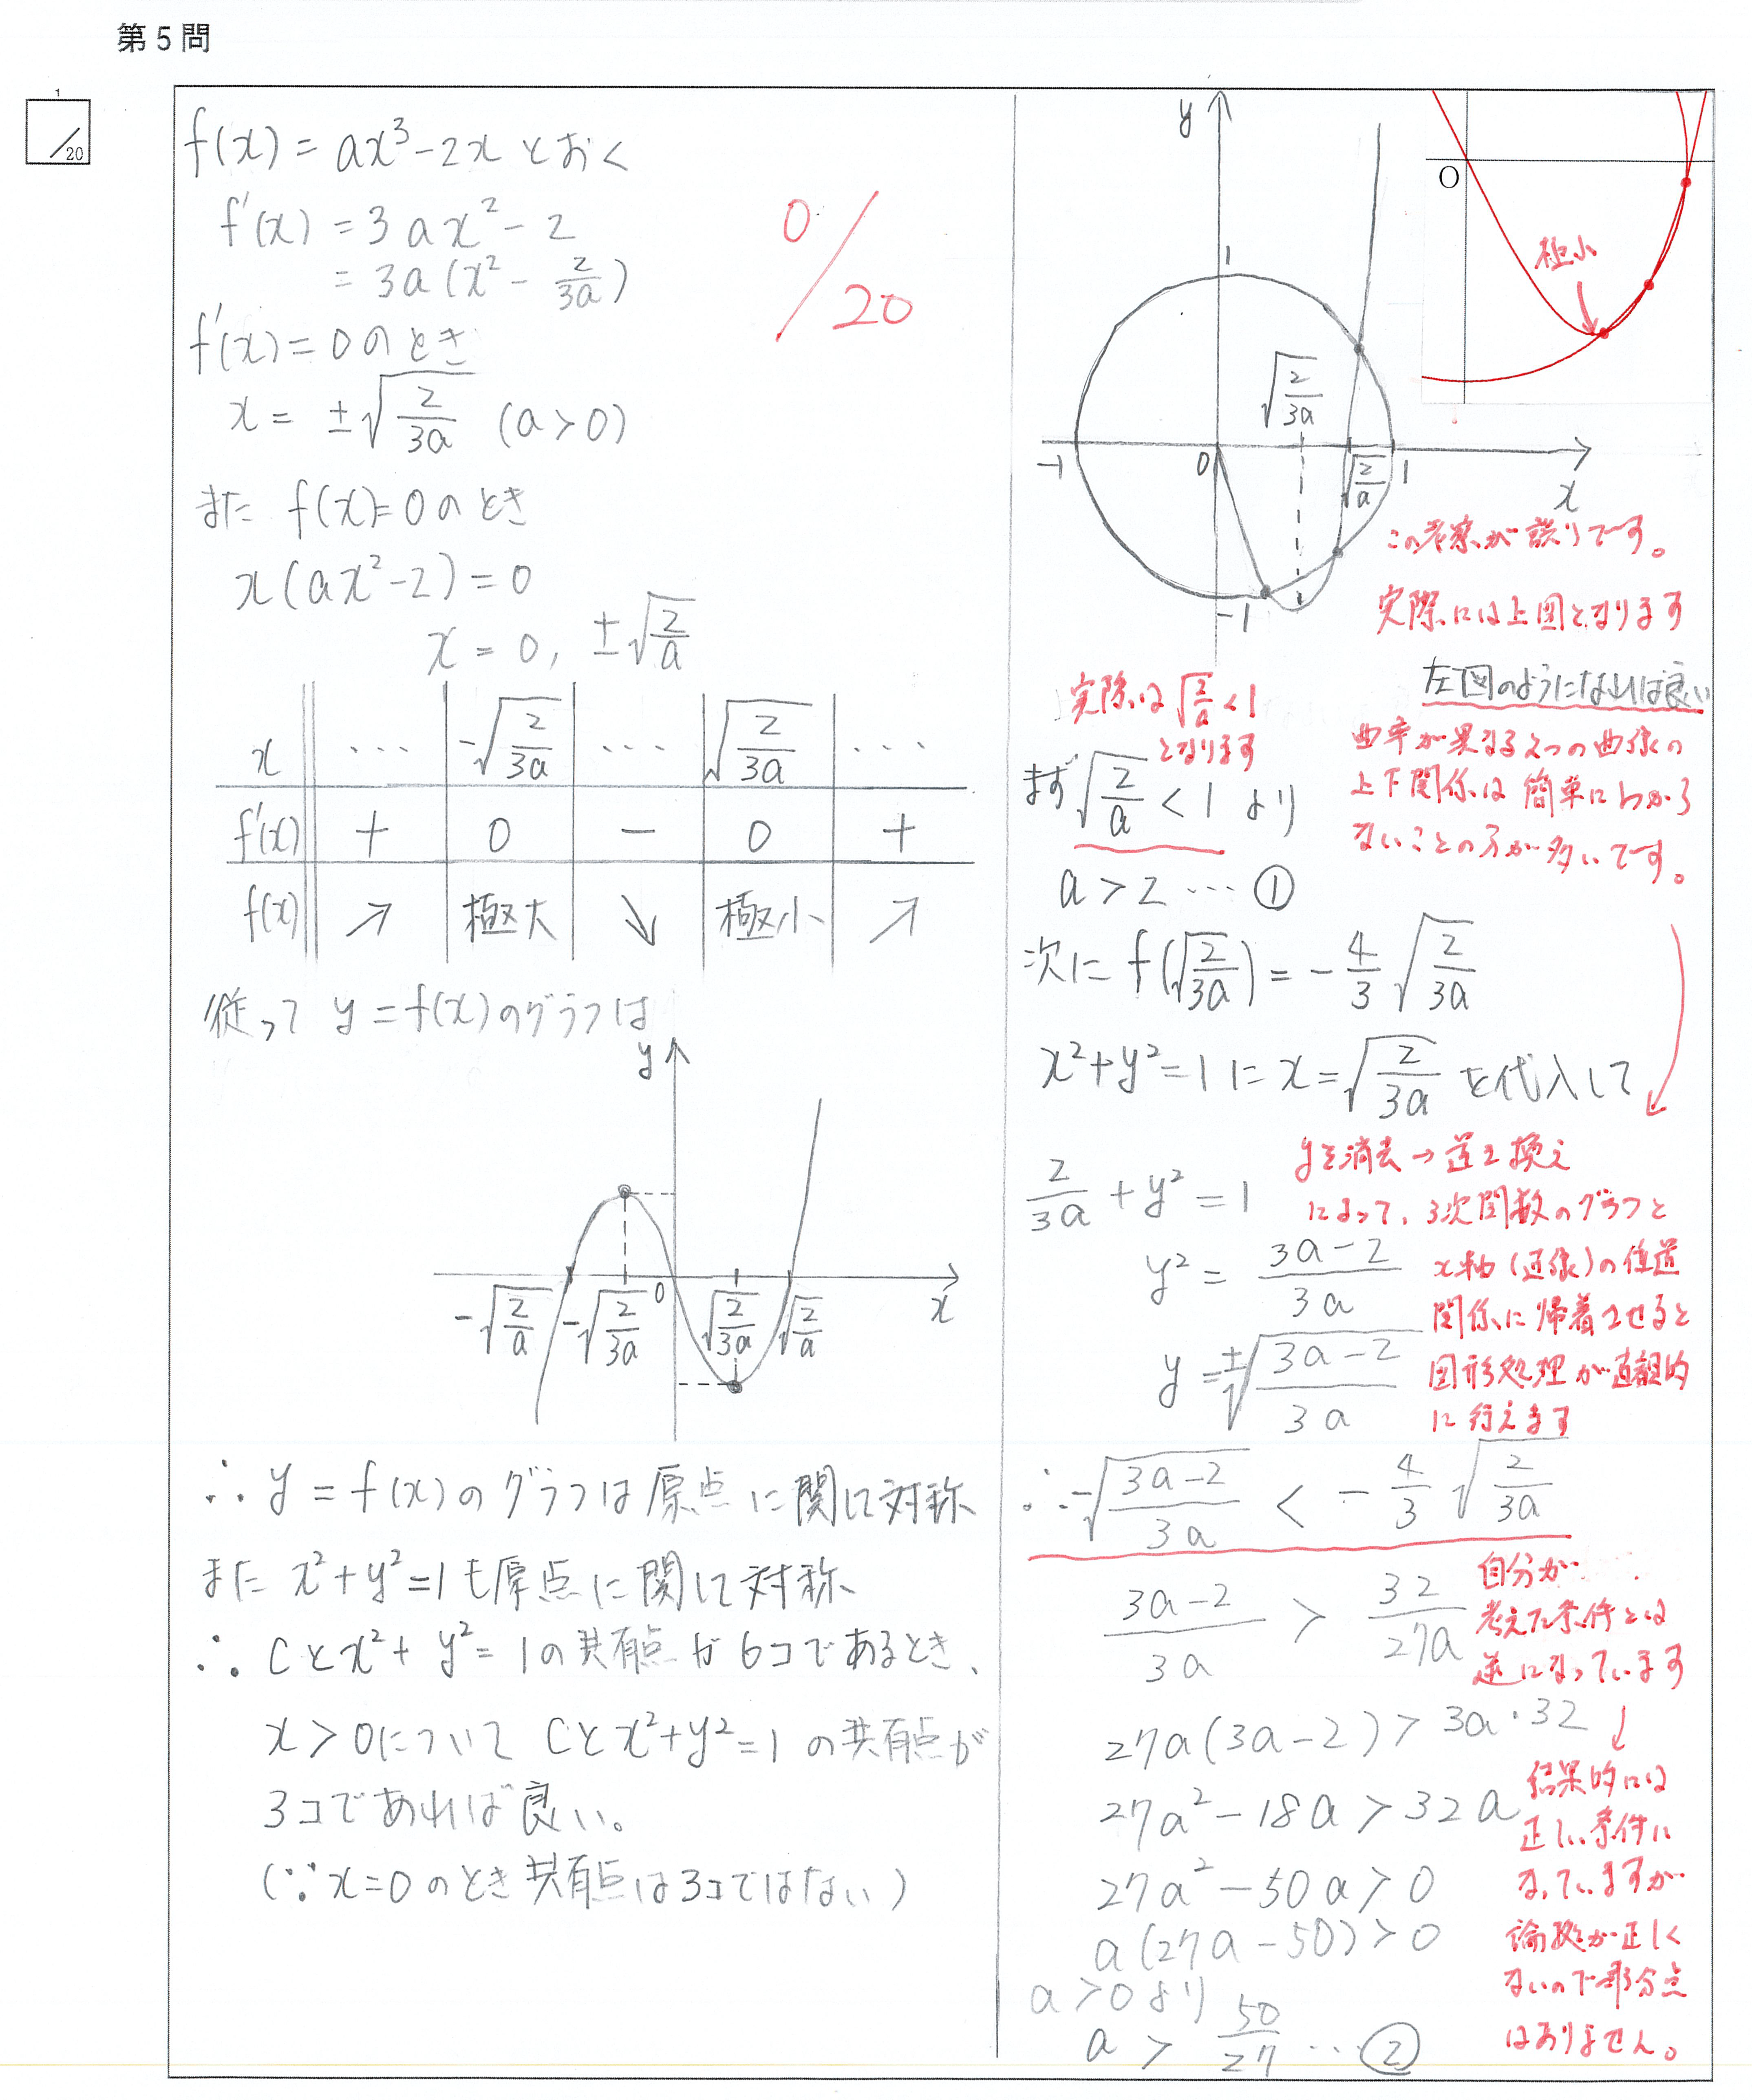 第5問
1
/20
f(x) = ax³-2x とおく
f'(x) = 3ax² - 2
= 3a(x² - 2/3a)
0/20
f'(x) = 0 のとき
x = ±√(2/3a) (a>0)
また f(x)=0のとき
x(ax²-2) = 0
x = 0, ±√(2/a)
x … -√(2/3a) … √(2/3a) …
f'(x) + 0 - 0 +
f(x) ↗ 極大 ↘ 極小 ↗
従って y = f(x)のグラフは
y
-√(2/a) -√(2/3a) 0 √(2/3a) √(2/a) x
∴ y = f(x)のグラフは原点に関して対称
また x²+y²=1も原点に関して対称
∴ Cとx²+y²=1の共有点が6コであるとき、
x>0について Cとx²+y²=1 の共有点が
3コであれば良い。
(∵x=0のとき共有点は3コではない)
y
1
√(2/3a)
-1 0 √(2/a) 1
x
-1
O
極小
この考察が誤りです。
実際には上図となります
左図のようになれば良い
実際は√(2/a)<1
となります
曲率が異なる2つの曲線の
上下関係は簡単にわから
ないことの方が多いです。
まず√(2/a) < 1 より
a > 2 … ①
次に f(√(2/3a)) = -4/3 √(2/3a)
x²+y²=1 に x=√(2/3a) を代入して
yを消去→置き換え
によって、3次関数のグラフと
x軸(直線)の位置
関係に帰着させると
図形処理が直観的
に行えます
2/3a + y² = 1
y² = (3a-2)/3a
y = ±√((3a-2)/3a)
∴ -√((3a-2)/3a) < -4/3 √(2/3a)
自分が
考えた条件とは
逆になっています
(3a-2)/3a > 32/27a
27a(3a-2) > 3a・32
27a²-18a > 32a
27a²-50a > 0
a(27a-50) > 0
a>0より
a > 50/27 … ②
結果的には
正しい条件に
なっていますが
論拠が正しく
ないので部分点
はありません。